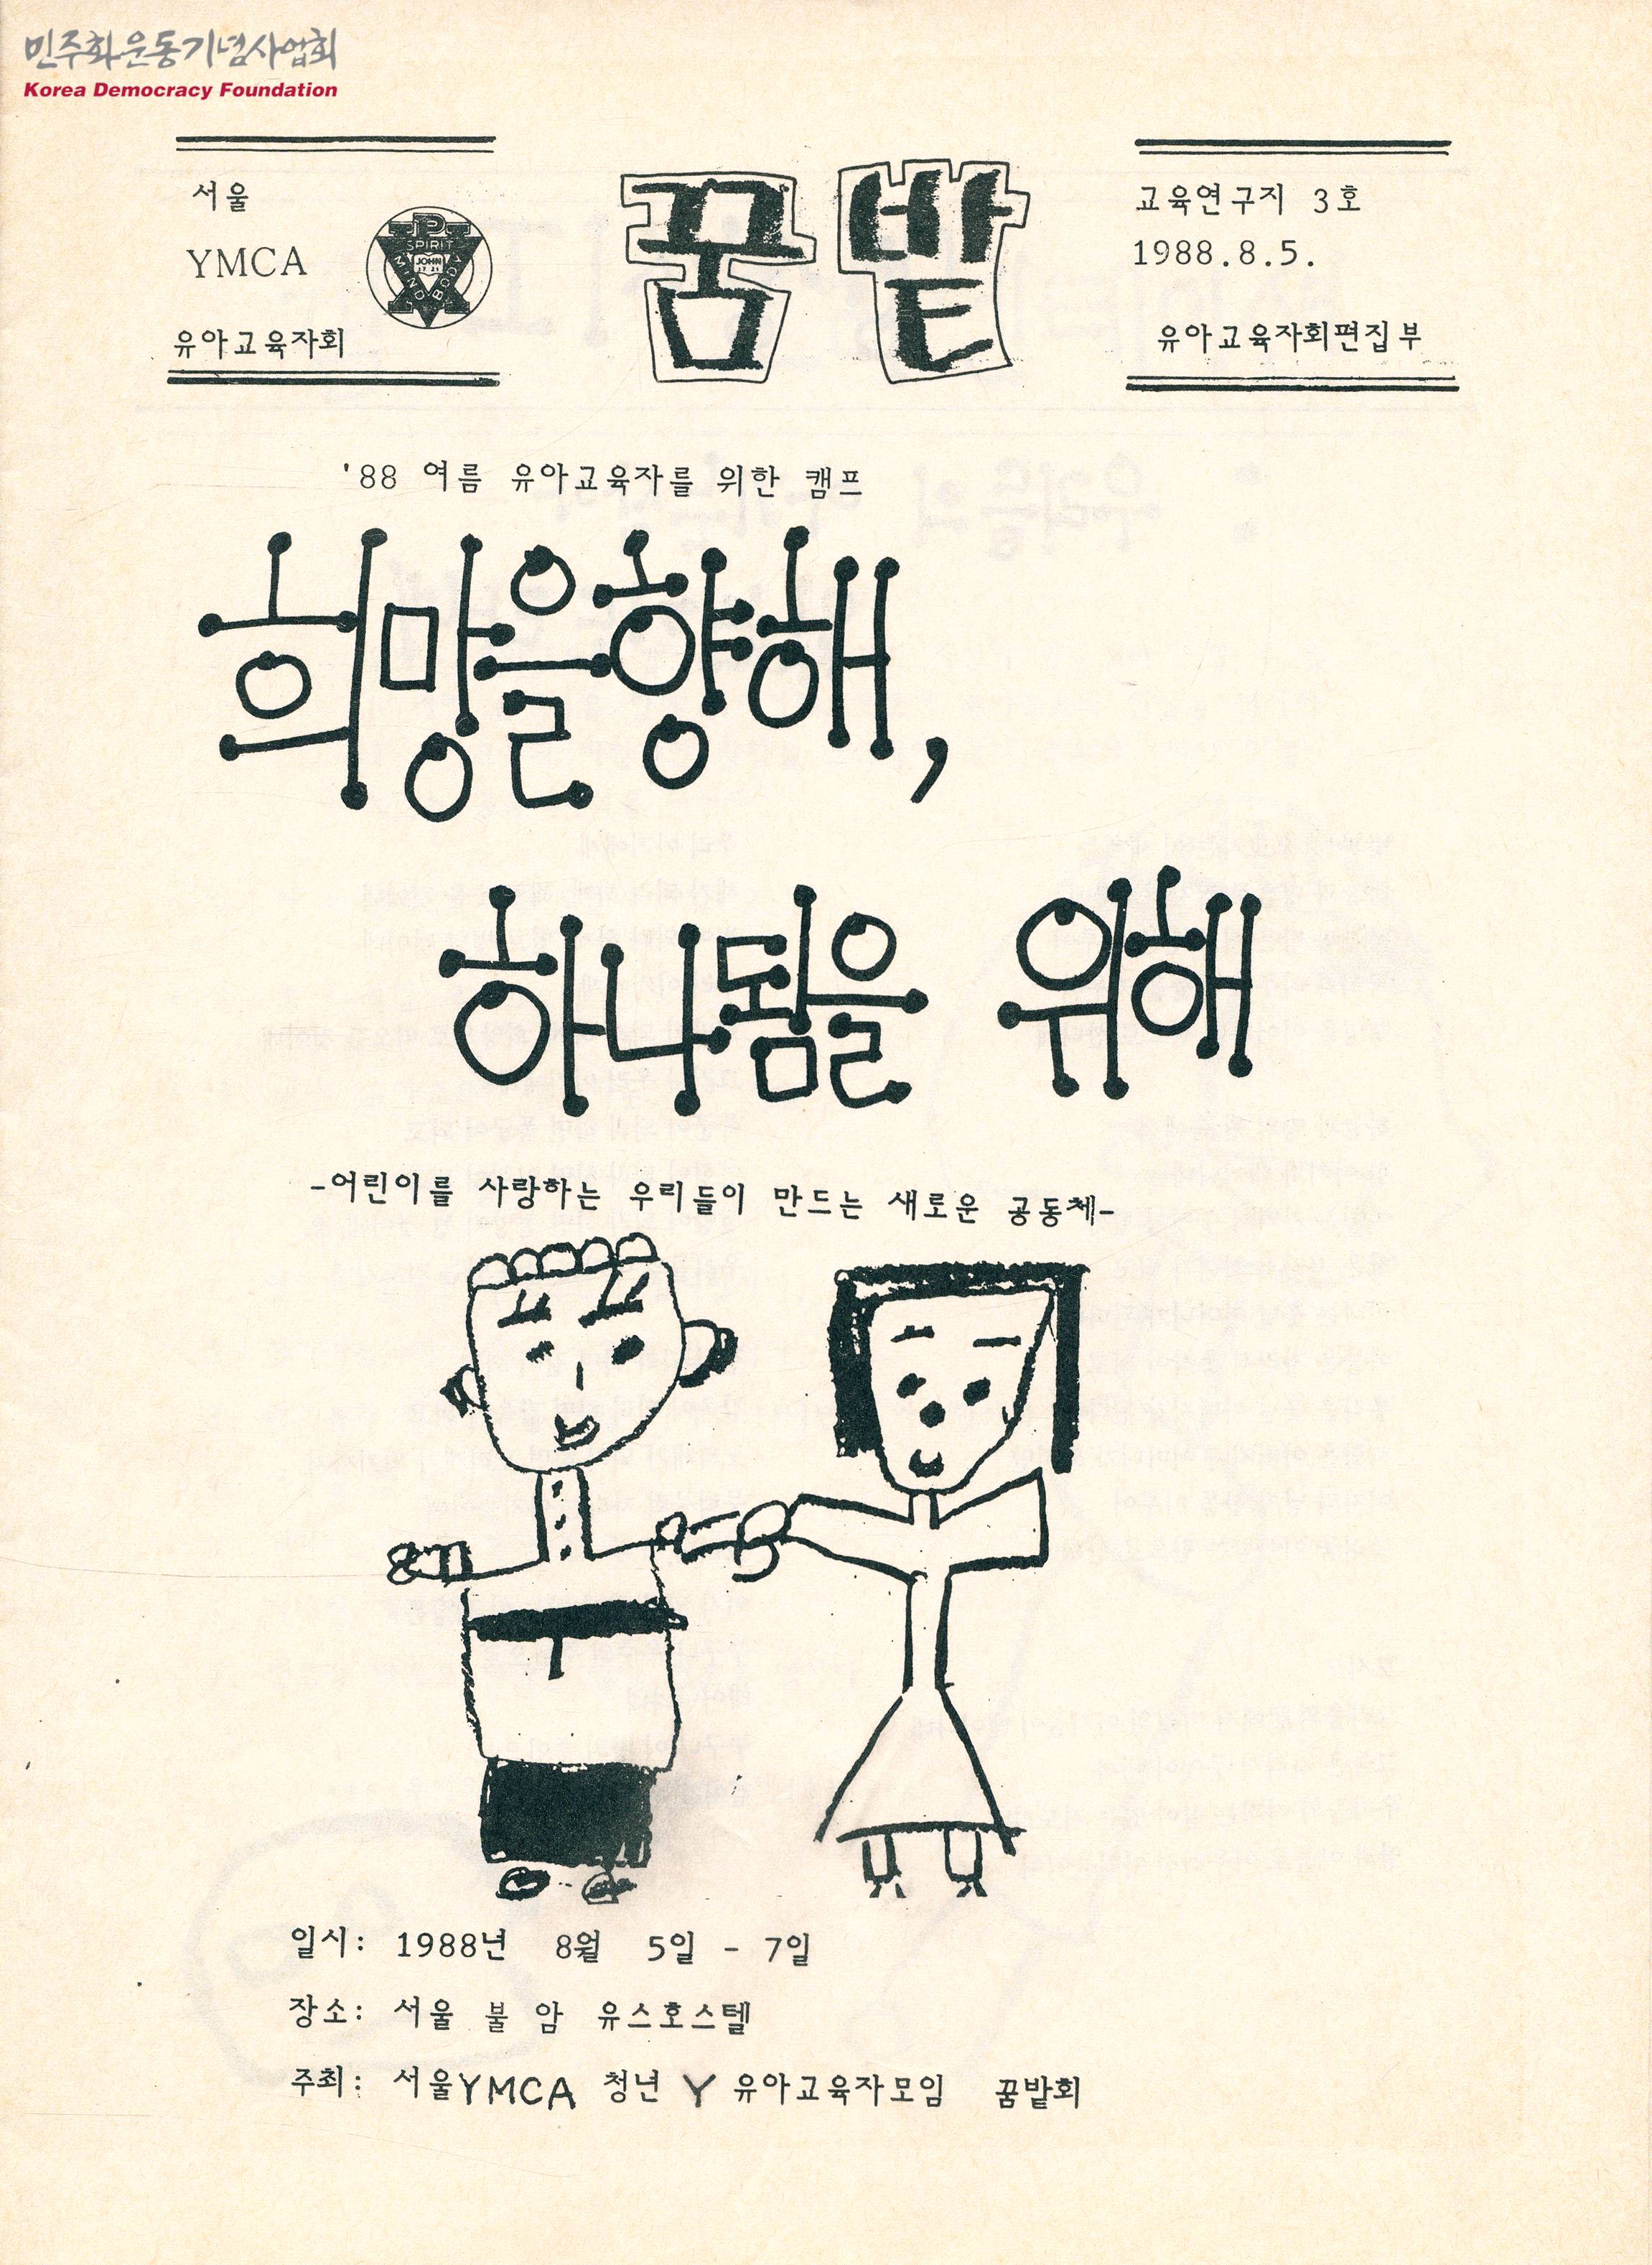 민주화운동기념사업회
Korea Democracy Foundation
서울
YMCA
유아교육자회
SPIRIT
MIND
BODY
JOHN
17 21
꿈밭
교육연구지 3호
1988.8.5.
유아교육자회편집부
'88 여름 유아교육자를 위한 캠프
희망을향해,
하나됨을 위해
-어린이를 사랑하는 우리들이 만드는 새로운 공동체-
일시: 1988년 8월 5일 - 7일
장소: 서울 불 암 유스호스텔
주최: 서울YMCA 청년 Y 유아교육자모임 꿈밭회